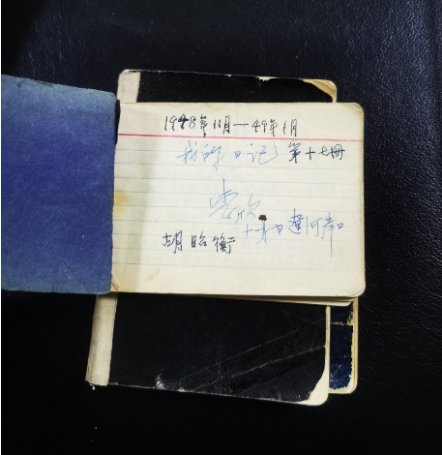 1948年11月—49年1月
我的日记 第十七册
十一月 遼河岸
胡昭衡